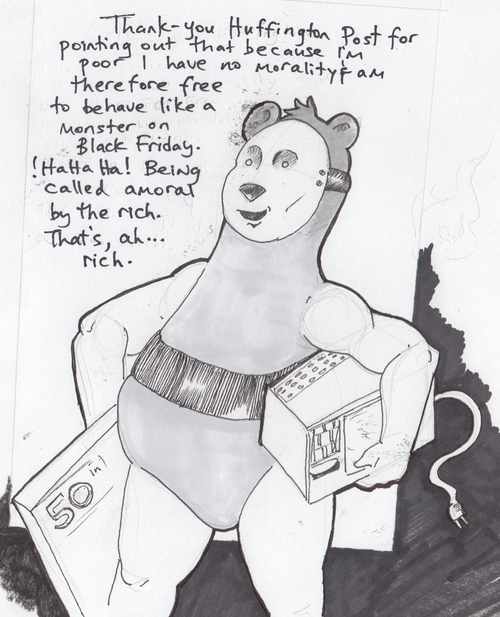 Thank-you Huffington Post for
pointing out that because I'm
poor I have no morality & am
therefore free
to behave like a
monster on
Black Friday.
!HaHa Ha! Being
called amoral
by the rich.
That's, ah...
rich.
50 in